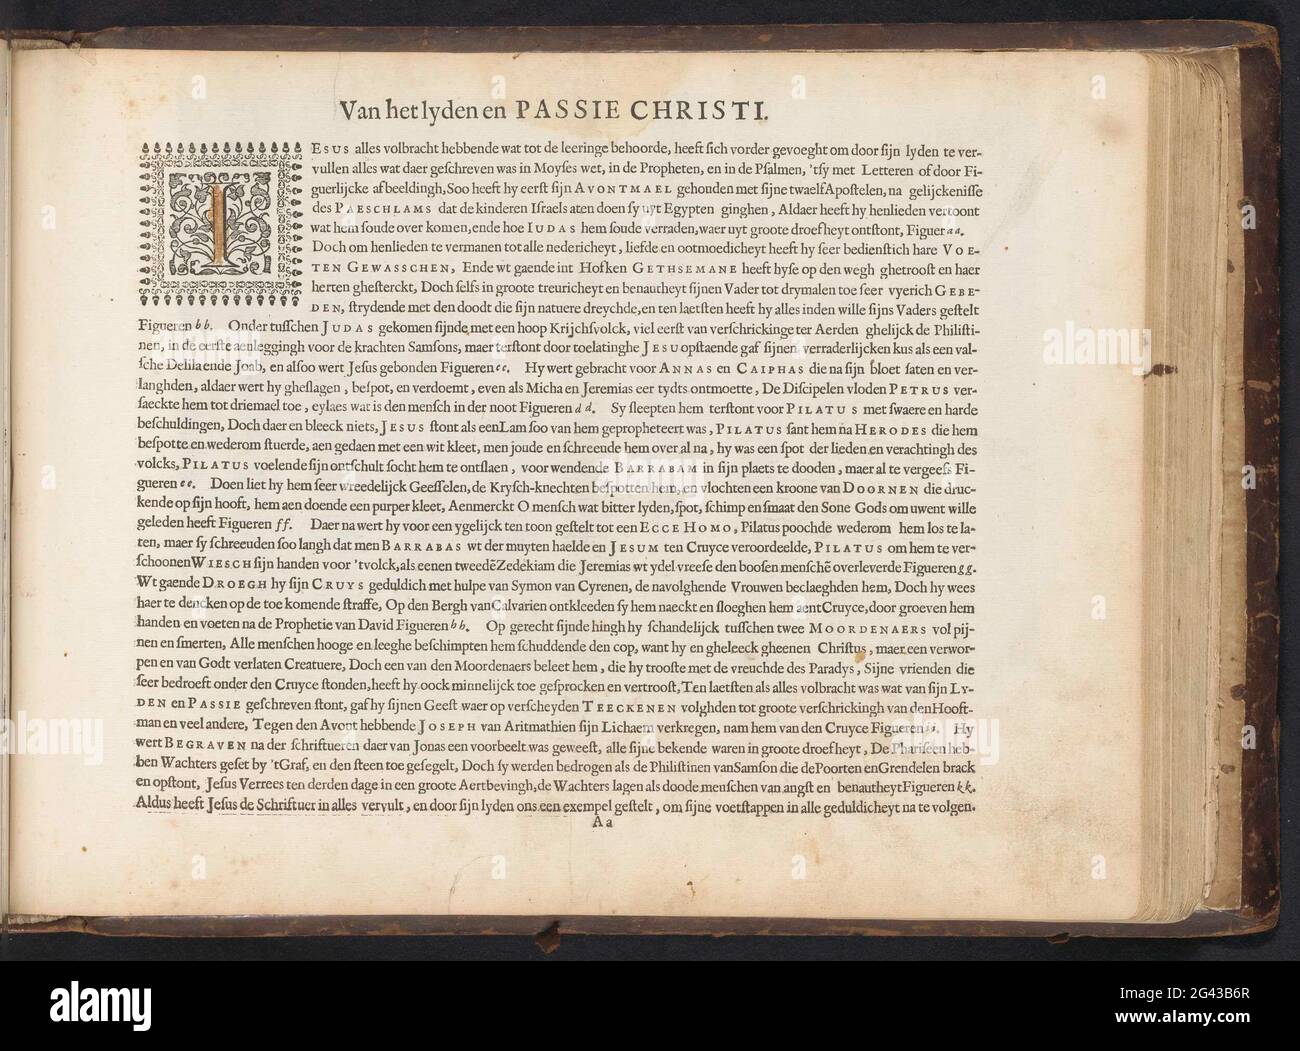 Van het lyden en PASSIE CHRISTI.
IESUS alles volbracht hebbende wat tot de leeringe behoorde, heeft sich vorder gevoeght om door sijn lyden te ver-
vullen alles wat daer geschreven was in Moyses wet, in de Propheten, en in de Psalmen, 'tsy met Letteren of door Fi-
guerlijcke afbeeldingh, Soo heeft hy eerst sijn AVONTMAEL gehouden met sijne twaelf Apostelen, na gelijckenisse
des PAESCHLAMS dat de kinderen Israels aten doen sy uyt Egypten ginghen, Aldaer heeft hy henlieden vertoont
wat hem soude over komen, ende hoe IUDAS hem soude verraden, waer uyt groote droefheyt ontstont, Figuer aa.
Doch om henlieden te vermanen tot alle nedericheyt, liefde en ootmoedicheyt heeft hy seer bedienstich hare VOE-
TEN GEWASSCHEN, Ende wt gaende int Hofken GETHSEMANE heeft hyse op den wegh ghetroost en haer
herten ghesterckt, Doch self s in groote treuricheyt en benautheyt sijnen Vader tot drymalen toe seer vyerich GEBE-
DEN, strydende met den doodt die sijn natuere dreychde, en ten laetsten heeft hy alles inden wille sijns Vaders gestelt
Figueren bb. Onder tusschen JUDAS gekomen sijnde met een hoop Krijchsvolck, viel eerst van verschrickinge ter Aerden ghelijck de Philisti-
nen, in de eerste aenleggingh voor de krachten Samsons, maer terstont door toelatinghe JESU opstaende gaf sijnen verraderlijcken kus als een val-
sche Delila ende Joab, en alsoo wert Jesus gebonden Figueren cc. Hy wert gebracht voor ANNAS en CAIPHAS die na sijn bloet saten en ver-
langhden, aldaer wert hy gheslagen, bespot, en verdoemt, even als Micha en Jeremias eer tydts ontmoette, De Discipelen vloden PETRUS ver-
saeckte hem tot driemael toe, eylaes wat is den mensch in der noot Figueren dd. Sy sleepten hem terstont voor PILATUS met swaere en harde
beschuldingen, Doch daer en bleeck niets, JESUS stont als een Lam soo van hem gepropheteert was, PILATUS sant hem na HERODES die hem
bespotte en wederom stuerde, aen gedaen met een wit kleet, men joude en schreeude hem over al na, hy was een spot der lieden en verachtingh des
volcks, PILATUS voelende sijn ontschult socht hem te ontslaen, voor wendende BARRABAM in sijn plaets te dooden, maer al te vergeefs Fi-
gueren ee. Doen liet hy hem seer wreedelijck Geesselen, de Krysch-knechten bespotten hem, en vlochten een kroone van DOORNEN die druc-
kende op sijn hooft, hem aen doende een purper kleet, Aenmerckt O mensch wat bitter lyden, spot, schimp en smaat den Sone Gods om uwent wille
geleden heeft Figueren ff. Daer na wert hy voor een ygelijck ten toon gestelt tot een ECCE HOMO, Pilatus poochde wederom hem los te la-
ten, maer sy schreeuden soo langh dat men BARRABAS wt der muyten haelde en JESUM ten Cruyce veroordeelde, PILATUS om hem te ver-
schoonen WIESCH sijn handen voor 'tvolck, als eenen tweedē Zedekiam die Jeremias wt ydel vreese den boosen menschē overleverde Figueren gg.
Wt gaende DROEGH hy sijn CRUYS geduldich met hulpe van Symon van Cyrenen, de navolghende Vrouwen beclaeghden hem, Doch hy wees
haer te dencken op de toe komende straffe, Op den Bergh van Calvarien ontkleeden sy hem naeckt en sloeghen hem aent Cruyce, door groeven hem
handen en voeten na de Prophetie van David Figueren hh. Op gerecht sijnde hingh hy schandelijck tusschen twee MOORDENAERS vol pij-
nen en smerten, Alle menschen hooge en leeghe beschimpten hem schuddende den cop, want hy en gheleeck gheenen Christus, maer een verwor-
pen en van Godt verlaten Creatuere, Doch een van den Moordenaers beleet hem, die hy trooste met de vreuchde des Paradys, Sijne vrienden die
seer bedroeft onder den Cruyce stonden, heeft hy oock minnelijck toe gesprocken en vertroost, Ten laetsten als alles volbracht was wat van sijn LY-
DEN en PASSIE geschreven stont, gaf hy sijnen Geest waer op verscheyden TEECKENEN volghden tot groote verschrickingh van den Hooft-
man en veel andere, Tegen den Avont hebbende JOSEPH van Aritmathien sijn Lichaem verkregen, nam hem van den Cruyce Figueren ii. Hy
wert BEGRAVEN na der schriftueren daer van Jonas een voorbeelt was geweest, alle sijne bekende waren in groote droefheyt, De Phariseen heb-
ben Wachters geset by 'tGraf, en den steen toe gesegelt, Doch sy werden bedrogen als de Philistinen van Samson die de Poorten en Grendelen brack
en opstont, Jesus Verrees ten derden dage in een groote Aertbevingh, de Wachters lagen als doode menschen van angst en benautheyt Figueren kk.
Aldus heeft Jesus de Schriftuer in alles vervult, en door sijn lyden ons een exempel gestelt, om sijne voetstappen in alle geduldicheyt na te volgen.
Aa
alamy
Image ID: 2G43B6R
www.alamy.com